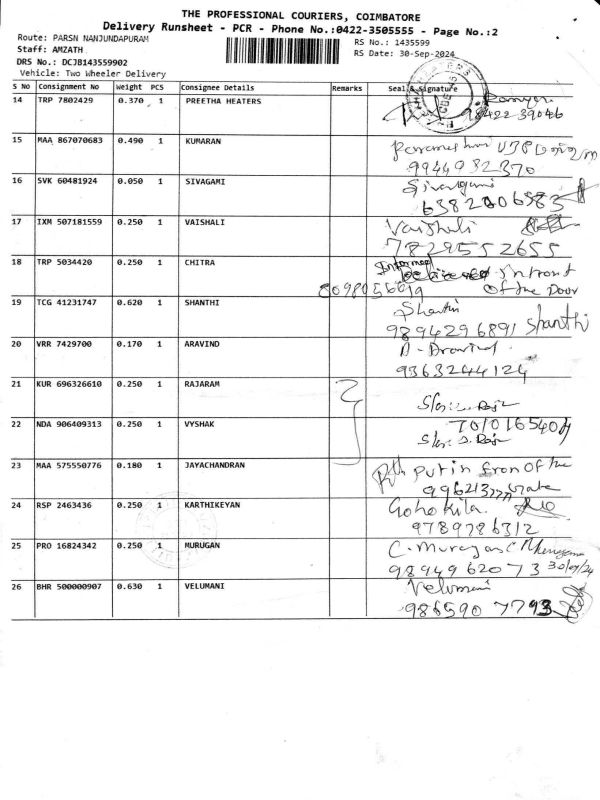 THE PROFESSIONAL COURIERS, COIMBATORE
Delivery Runsheet - PCR - Phone No.:0422-3505555 - Page No.:2
Route: PARSN NANJUNDAPURAM
RS No.: 1435599
Staff: AMZATH
RS Date: 30-Sep-2024
DRS No.: DCJB143559902
Vehicle: Two Wheeler Delivery
S No Consignment No Weight PCS Consignee Details Remarks Seal & Signature
14 TRP 7802429 0.370 1 PREETHA HEATERS
98422 39046
15 MAA 867070683 0.490 1 KUMARAN
9944932370
16 SVK 60481924 0.050 1 SIVAGAMI Sivagami
6382006583
17 IXM 507181559 0.250 1 VAISHALI Vaishali
7829552655
18 TRP 5034420 0.250 1 CHITRA infront
8098056619 of the Door
19 TCG 41231747 0.620 1 SHANTHI Shanthi
9894296891 Shanthi
20 VRR 7429700 0.170 1 ARAVIND
9363244124
21 KUR 696326610 0.250 1 RAJARAM
22 NDA 906409313 0.250 1 VYSHAK
23 MAA 575550776 0.180 1 JAYACHANDRAN Put in fron of the
24 RSP 2463436 0.250 1 KARTHIKEYAN Gohokila
9789786312
25 PRO 16824342 0.250 1 MURUGAN C. Murugan
9894962073 30/09/24
26 BHR 500000907 0.630 1 VELUMANI Velumani
986590 7793